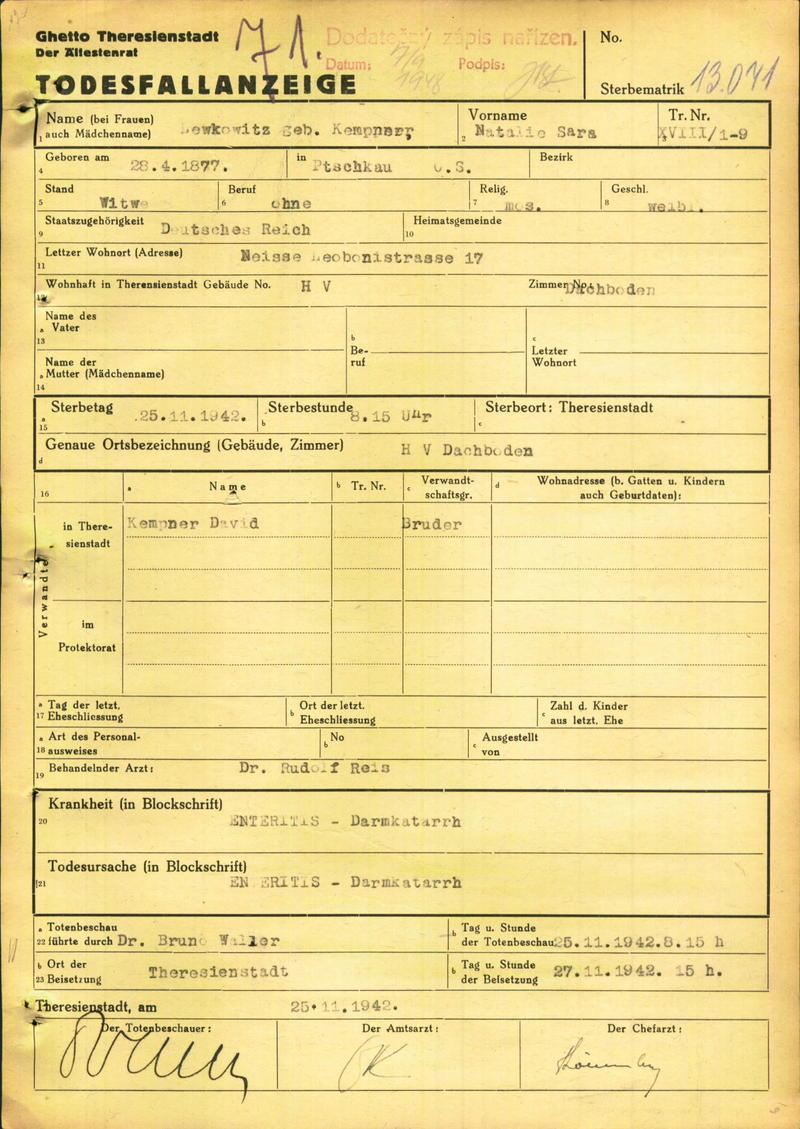 Ghetto Theresienstadt
Der Ältestenrat
TODESFALLANZEIGE
71.
Dodatečný zápis nařízen.
Datum: 7/9 1948 Podpis:
No.
Sterbematrik 13.071
Name (bei Frauen) auch Mädchenname) Lewkowitz geb. Kempner,
1
Vorname
2 Natalie Sara
Tr. Nr.
3 XVIII/1-9
Geboren am
4 28.4.1877.
in Ptschkau O.S.
Bezirk
Stand
5 Witwe
Beruf
6 ohne
Relig.
7 mos.
Geschl.
8 weibl.
Staatszugehörigkeit
9 Deutsches Reich
Heimatsgemeinde
10
Lettzer Wohnort (Adresse)
11 Neisse Leobonistrasse 17
Wohnhaft in Therensienstadt Gebäude No. H V
12
Zimmer No.: Dachboden
Name des
a Vater
13
b
Be-
ruf
c
Letzter
Wohnort
Name der
a Mutter (Mädchenname)
14
Sterbetag 25.11.1942.
a
15
Sterbestunde 8.15 Uhr
b
Sterbeort: Theresienstadt
c
Genaue Ortsbezeichnung (Gebäude, Zimmer) H V Dachboden
d
16
a Name
b Tr. Nr.
c Verwandt-
schaftsgr.
d Wohnadresse (b. Gatten u. Kindern
auch Geburtdaten):
Verwandte
in There-
sienstadt
Kempner David Bruder
im
Protektorat
a Tag der letzt.
17 Eheschliessung
b Ort der letzt.
Eheschliessung
c Zahl d. Kinder
aus letzt. Ehe
a Art des Personal-
18 ausweises
b No
c Ausgestellt
von
19 Behandelnder Arzt: Dr. Rudolf Reis
Krankheit (in Blockschrift)
20 ENTERITIS - Darmkatarrh
Todesursache (in Blockschrift)
21 ENTERITIS - Darmkatarrh
a Totenbeschau
22 führte durch Dr. Bruno Waller
b Tag u. Stunde
der Totenbeschau 25.11.1942.8.15 h
b Ort der
23 Beisetzung Theresienstadt
b Tag u. Stunde
der Beisetzung 27.11.1942. 15 h.
Theresienstadt, am 25.11.1942.
Der Totenbeschauer:
Der Amtsarzt:
Der Chefarzt: